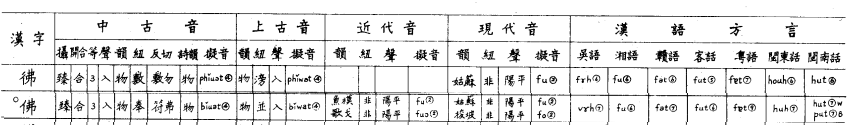 漢字 中古音 上古音 近代音 現代音 漢語方言
攝 開合 等 聲 韻 紐 反切 詩韻 擬音 韻 紐 聲 擬音 韻 紐 聲 擬音 韻 紐 聲 擬音 吳語 湘語 贛語 客語 粵語 閩東話 閩南話
彿 臻 合 3 入 物 敷 敷勿 物 phiuat④ 物 滂 入 phiwat④ 姑蘇 非 陽平 fu② fɤh⑥ fu⑥ fat⑥ fut⑤ fɐt⑦ houh⑥ hut⑥
°佛 臻 合 3 入 物 奉 符弗 物 biuat④ 物 並 入 biwat④ 魚模 非 陽平 fu② 姑蘇 非 陽平 fu② vɤh⑦ fu⑥ fat⑦ fut⑥ fɐt⑨ huh⑦ hut⑦w
歌戈 非 陽平 fuo② 梭坡 非 陽平 fo② put⑦B